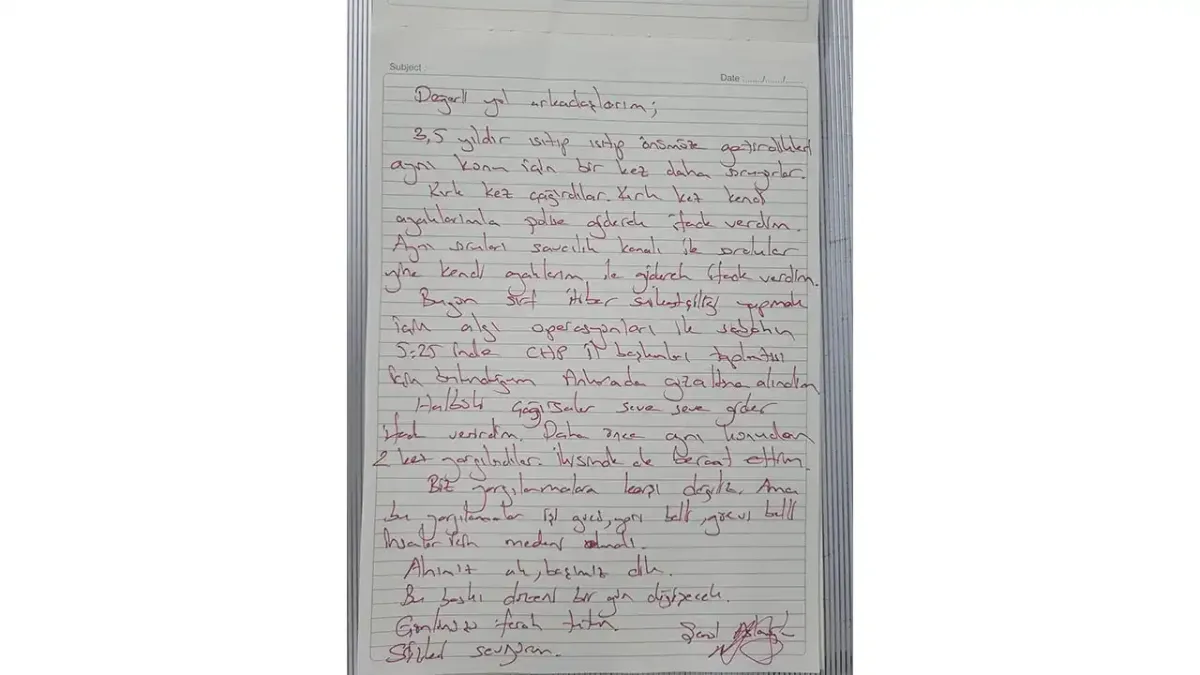 Subject :
Date :....../....../......
Değerli yol arkadaşlarım;
3,5 yıldır ısıtıp ısıtıp önümüze getirdikleri
aynı konu için bir kez daha soruyorlar.
Kırk kez çağırdılar. Kırk kez kendi
ayaklarımla polise giderek ifade verdim.
Aynı soruları savcılık kanalı ile sordular
yine kendi ayaklarım ile giderek ifade verdim.
Bugün sırf itibar suikastçiliği yapmak
için algı operasyonları ile sabahın
5:25 inde CHP il başkanları toplantısı
için bulunduğum Ankarada gözaltına alındım
Halbuki çağırsalar seve seve gider
ifade verirdim. Daha önce aynı konudan
2 kez yargıladılar. İkisinde de beraat ettim.
Biz yargılanmalara karşı değiliz. Ama
bu yargılamalar işi gücü, yeri belli, yurdu belli
insanlar için medeni olmalı.
Alnımız ak, başımız dik.
Bu baskı düzeni bir gün değişecek.
Gönlünüzü ferah tutun.
Sizleri seviyorum.